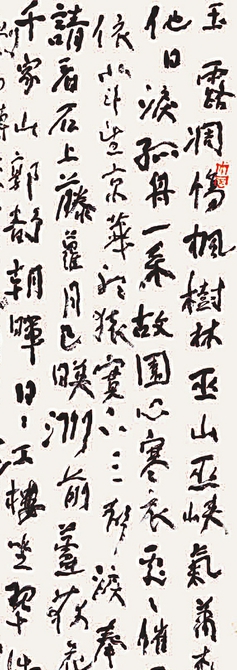 玉露凋傷楓樹林巫山巫峽氣蕭森
他日淚孤舟一系故園心寒衣處々催
依北斗望京華聽猿實下三聲淚奉
請看石上藤蘿月已映洲前蘆荻花
千家山郭靜朝暉日々江樓坐翠微